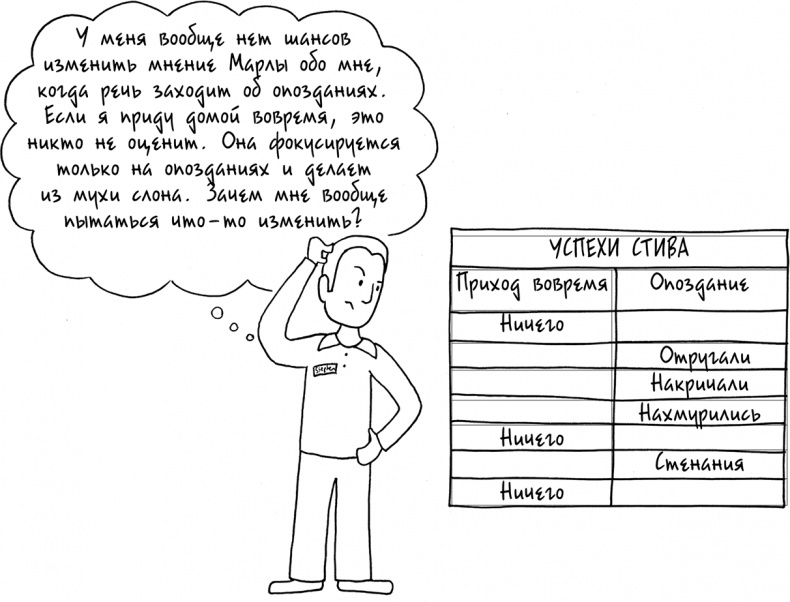 У меня вообще нет шансов
изменить мнение Марлы обо мне,
когда речь заходит об опозданиях.
Если я приду домой вовремя, это
никто не оценит. Она фокусируется
только на опозданиях и делает
из мухи слона. Зачем мне вообще
пытаться что-то изменить?
Stephen
УСПЕХИ СТИВА
Приход вовремя Опоздание
Ничего
Отругали
Накричали
Нахмурились
Ничего
Стенания
Ничего